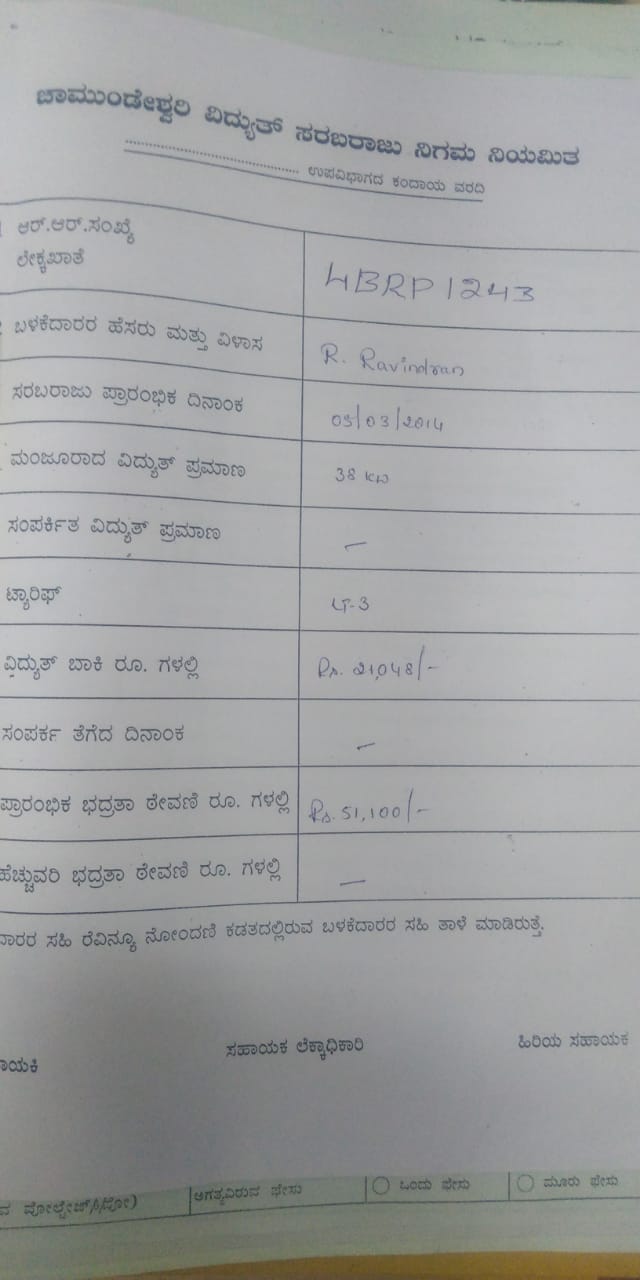 ಚಾಮುಂಡೇಶ್ವರಿ ವಿದ್ಯುತ್ ಸರಬರಾಜು ನಿಗಮ ನಿಯಮಿತ
........................................ ಉಪವಿಭಾಗದ ಕಂದಾಯ ವರದಿ
ಆರ್.ಆರ್.ಸಂಖ್ಯೆ
ಲೇಕ್ಕಖಾತೆ
HBRP1243
ಬಳಕೆದಾರರ ಹೆಸರು ಮತ್ತು ವಿಳಾಸ
R. Ravindran
ಸರಬರಾಜು ಪ್ರಾರಂಭಿಕ ದಿನಾಂಕ
05/03/2014
ಮಂಜೂರಾದ ವಿದ್ಯುತ್ ಪ್ರಮಾಣ
38 KW
ಸಂಪರ್ಕಿತ ವಿದ್ಯುತ್ ಪ್ರಮಾಣ
—
ಟ್ಯಾರಿಫ್
LT-3
ವಿದ್ಯುತ್ ಬಾಕಿ ರೂ. ಗಳಲ್ಲಿ
Rs. 21,048/-
ಸಂಪರ್ಕ ತೆಗೆದ ದಿನಾಂಕ
—
ಪ್ರಾರಂಭಿಕ ಭದ್ರತಾ ಠೇವಣಿ ರೂ. ಗಳಲ್ಲಿ
Rs. 51,100/-
ಹೆಚ್ಚುವರಿ ಭದ್ರತಾ ಠೇವಣಿ ರೂ. ಗಳಲ್ಲಿ
—
ದಾರರ ಸಹಿ ರೆವಿನ್ಯೂ ನೋಂದಣಿ ಕಡತದಲ್ಲಿರುವ ಬಳಕೆದಾರರ ಸಹಿ ತಾಳೆ ಮಾಡಿರುತ್ತೆ.
ಾಯಕಿ ಸಹಾಯಕ ಲೆಕ್ಕಾಧಿಕಾರಿ ಹಿರಿಯ ಸಹಾಯಕ
ಅಗತ್ಯವಿರುವ ಫೇಸು ಒಂದು ಫೇಸು ಮೂರು ಫೇಸು